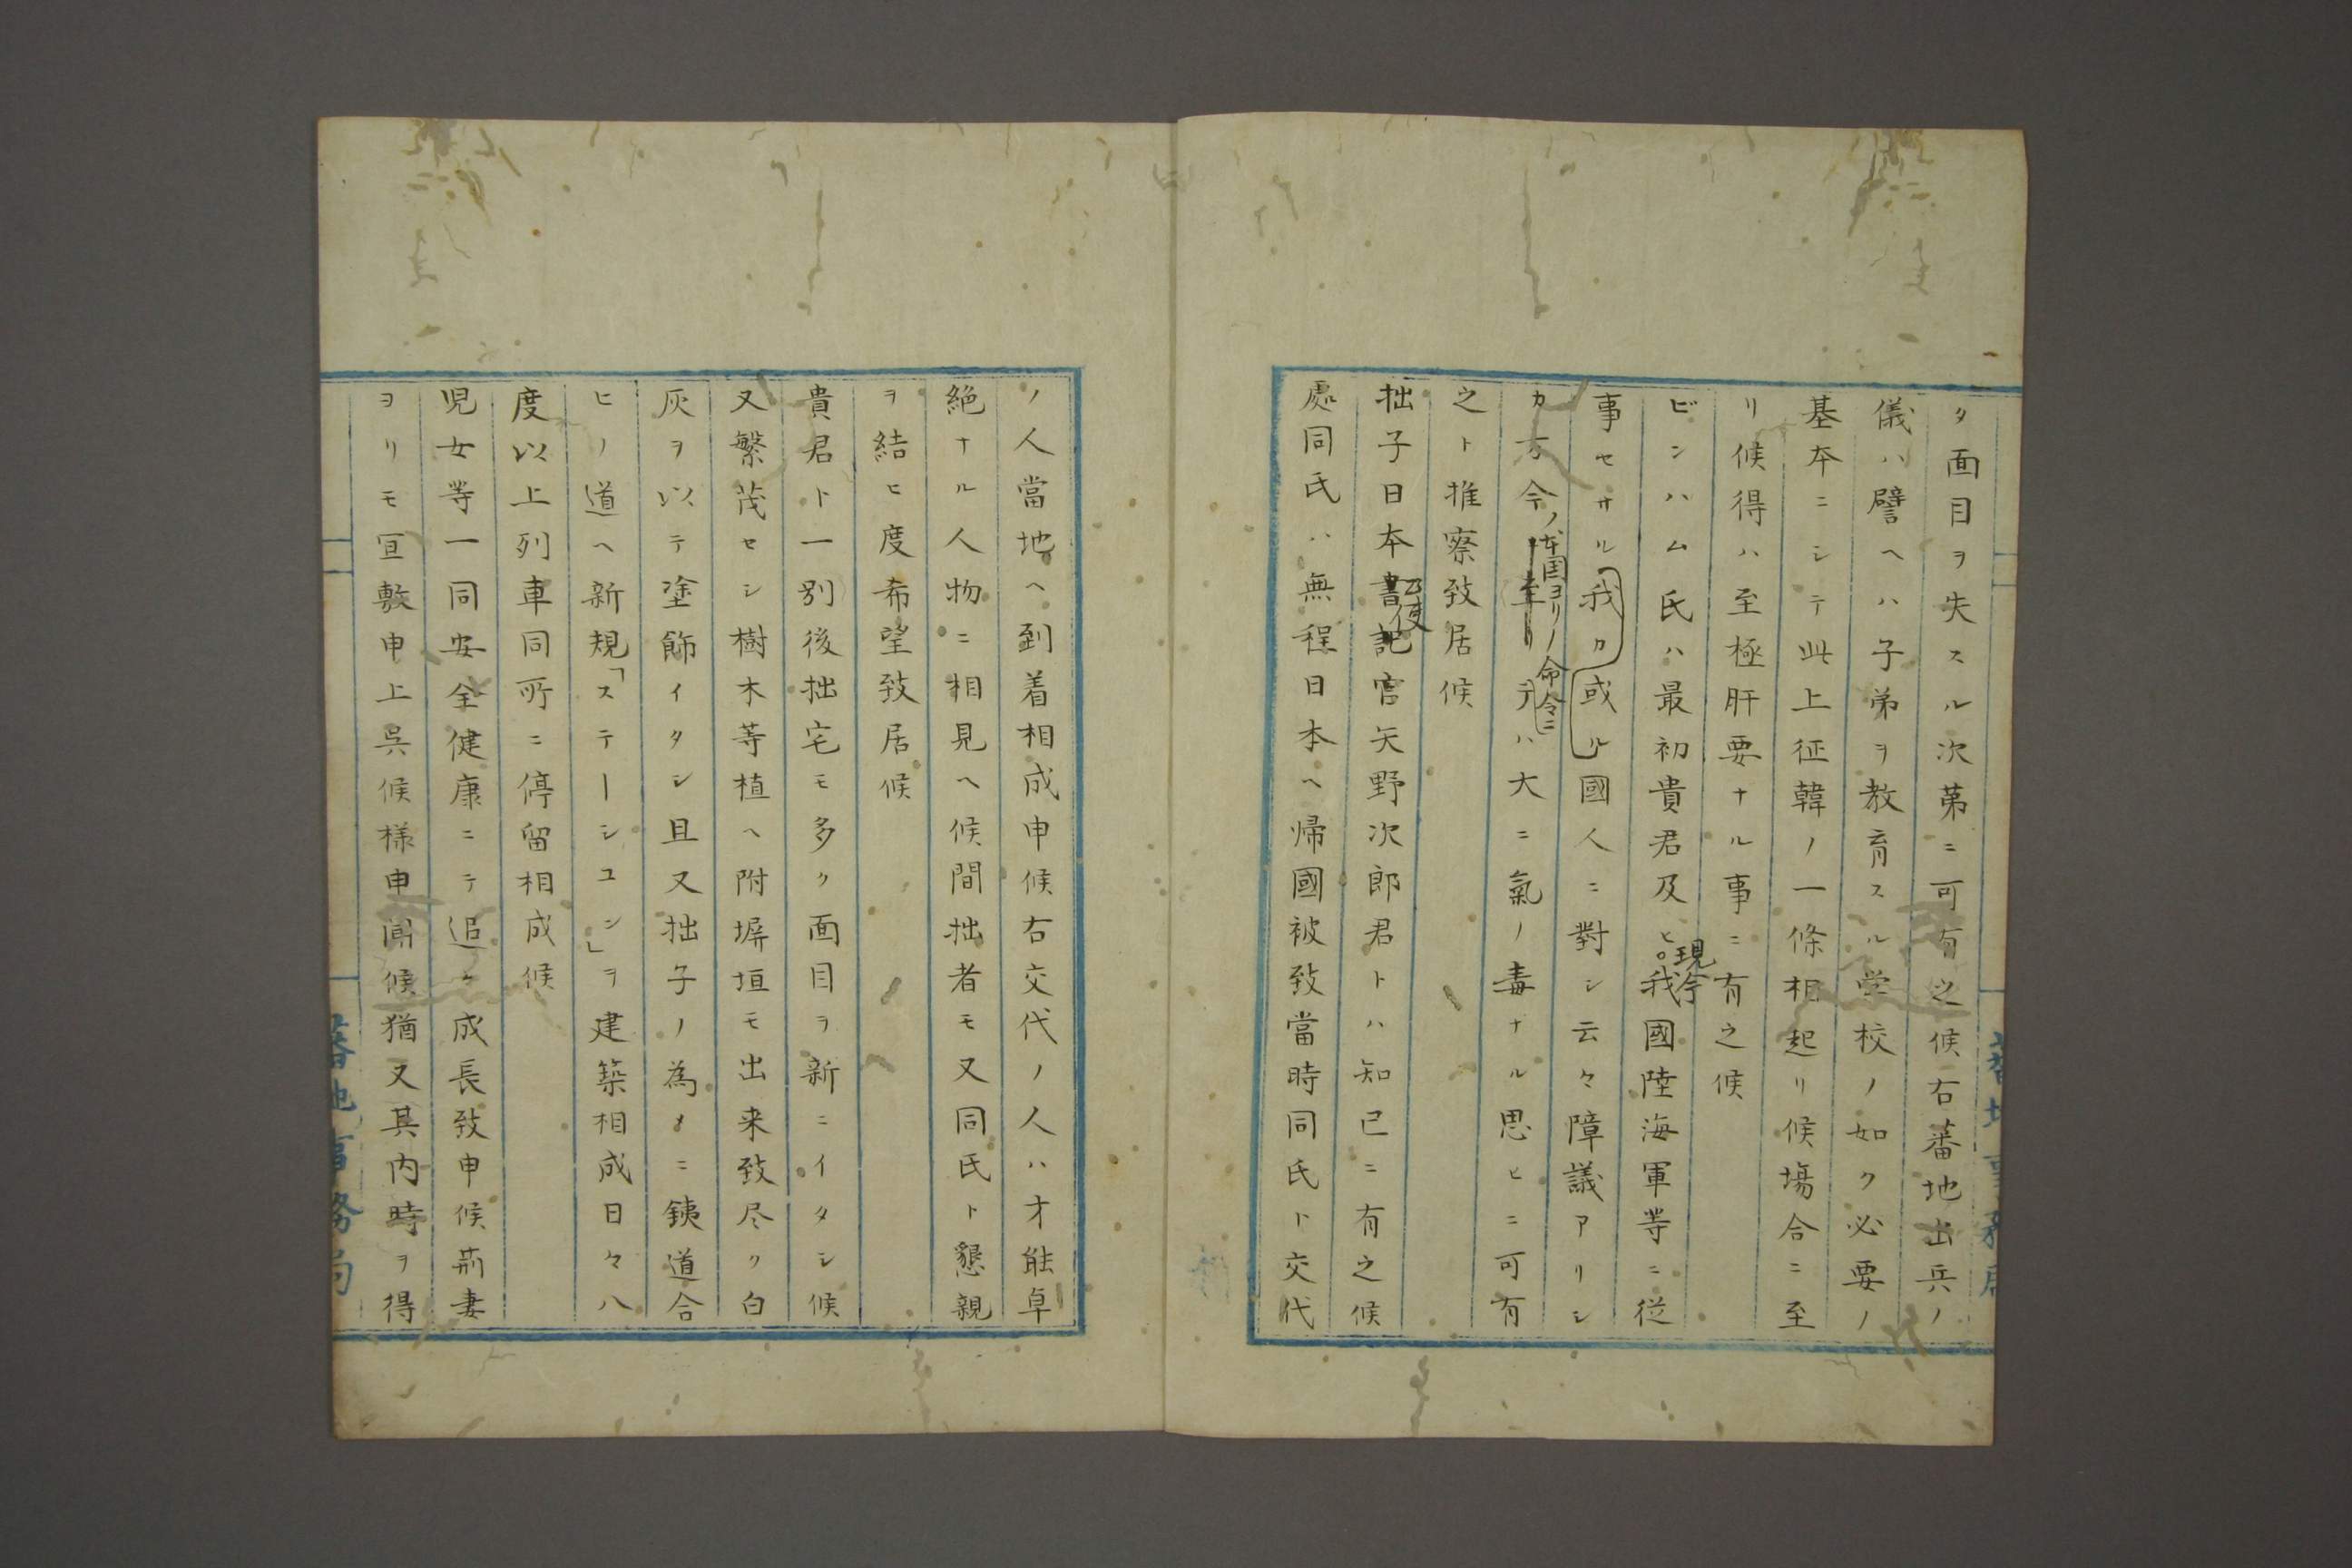 タ面目ヲ失スル次第ニ可有之候右蕃地出兵ノ
儀ハ譬ヘハ子弟ヲ教育スル学校ノ如ク必要ノ
基本ニシテ此上征韓ノ一條相起リ候塲合ニ至
リ候得ハ至極肝要ナル事ニ有之候
ビンハム氏ハ最初貴君及ヒ我國陸海軍等ニ從
現今
事セサル我カ或ル國人ニ對シ云々障議アリシ
カ方今ノ
本国ヨリノ命令ニ
テハ大ニ氣ノ毒ナル思ヒニ可有
之ト推察致居候
拙子日本書記官矢野次郎君トハ知已ニ有之候
公使
處同氏ハ無程日本ヘ帰國被致當時同氏ト交代
ノ人當地ヘ到着相成申候右交代ノ人ハ才能卓
絶ナル人物ニ相見ヘ候間拙者モ又同氏ト懇親
ヲ結ヒ度希望致居候
貴君ト一別後拙宅モ多ク面目ヲ新ニイタシ候
又繁茂セシ樹木等植ヘ附塀垣モ出来致尽ク白
灰ヲ以テ塗飾イタシ且又拙子ノ為メニ銕道合
ヒノ道ヘ新規「ステーシユン」ヲ建築相成日々八
度以上列車同所ニ停留相成候
児女等一同安全健康ニテ追々成長致申候荊妻
ヨリモ冝敷申上呉候様申聞候猶又其内時ヲ得
蕃地事務局